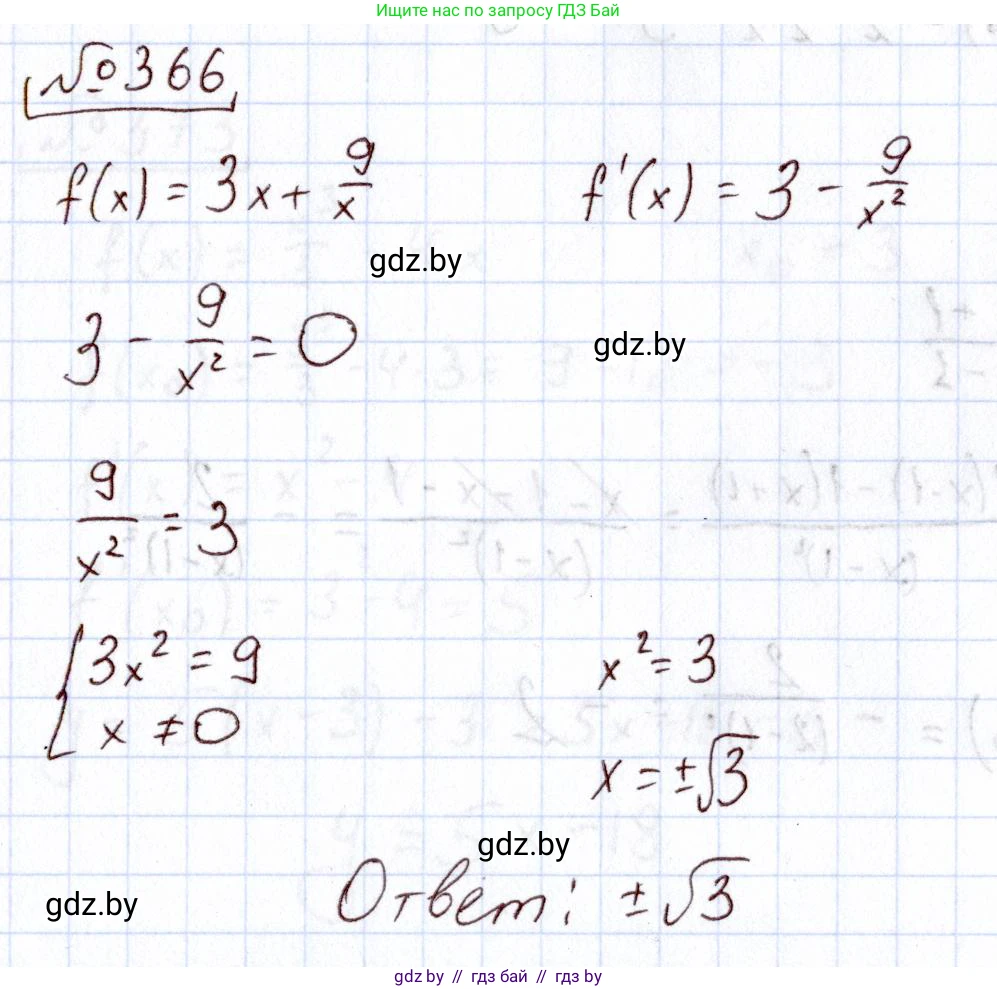 Ищите нас по запросу ГДЗ Бай
№366
f(x) = 3x + 9/x    f'(x) = 3 - 9/x²
gdz.by
3 - 9/x² = 0
gdz.by
9/x² = 3
{ 3x² = 9    x² = 3
x ≠ 0
x = ±√3
gdz.by
Ответ: ±√3
gdz.by
gdz.by // гдз бай // гдз by